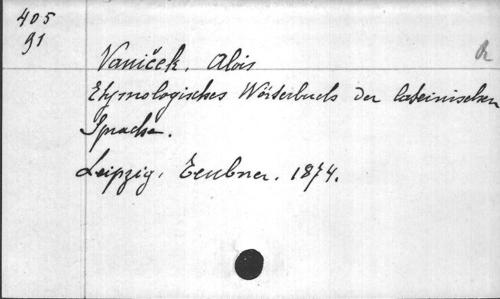 405
91
Vaniček, Alois
Etymologisches Wörterbuch der lateinischen
Sprache.
Leipzig, Teubner. 1874.